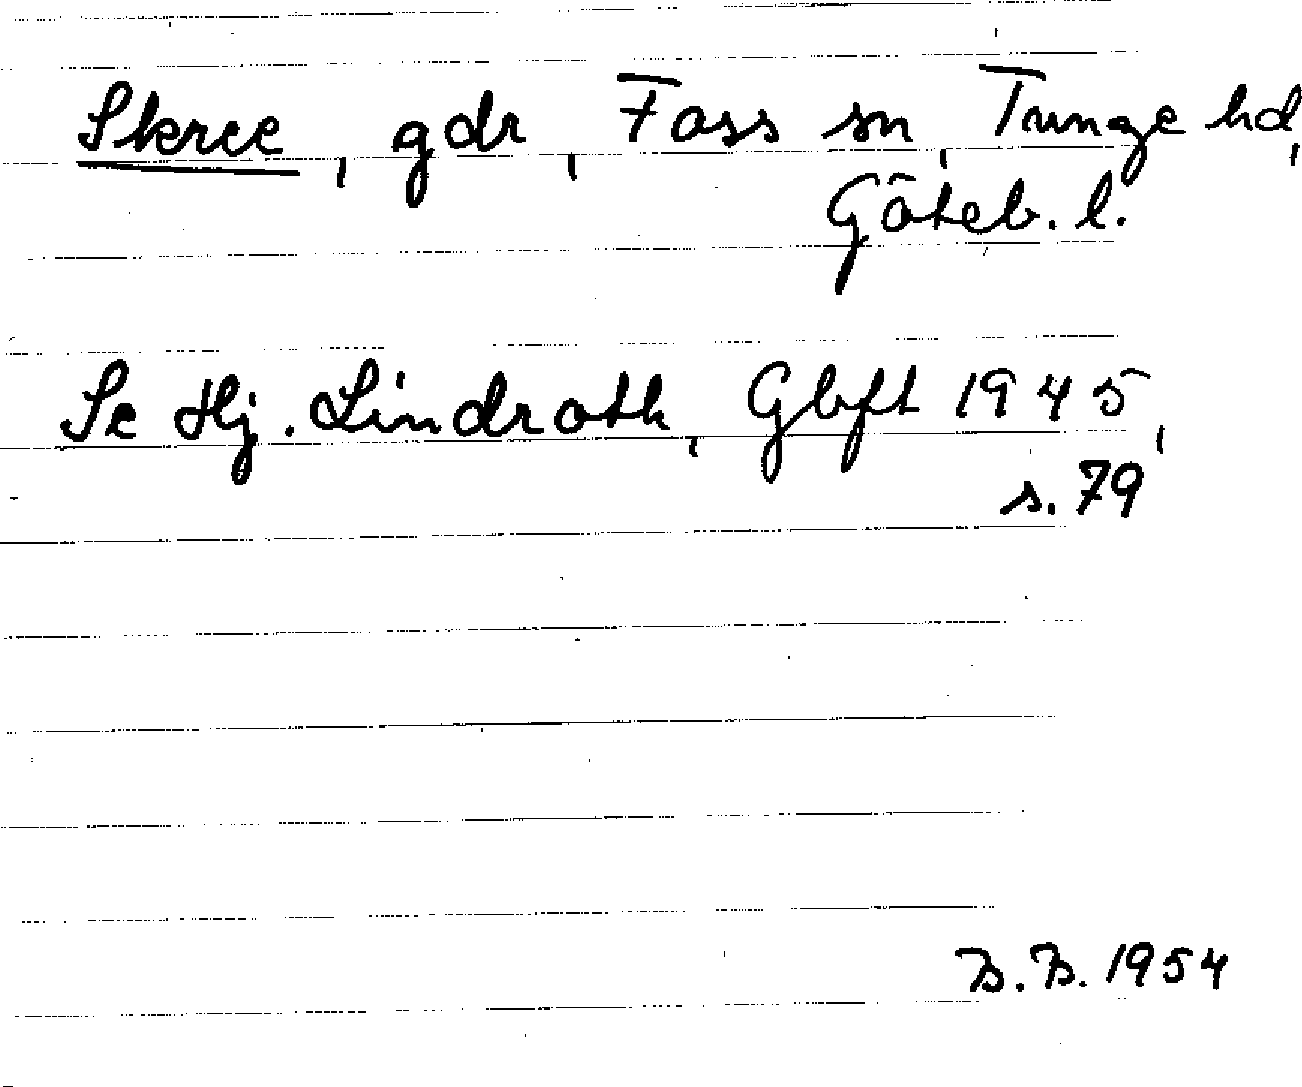 Skree, gdr, Foss sn, Tunge hd,
Göteb. l.
Se Hj. Lindroth, Gbft 1945,
s. 79
B. B. 1954